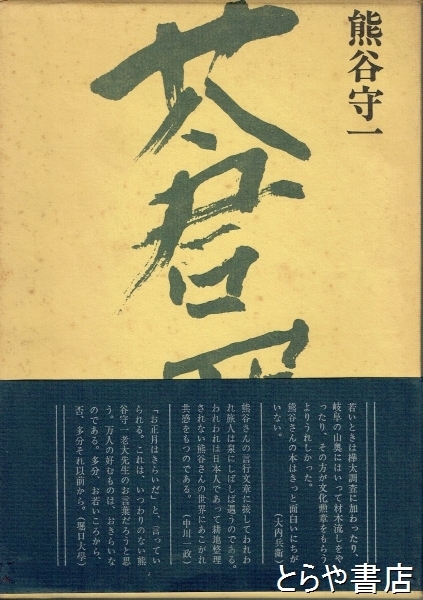 熊谷守一
蒼
若いときは樺太調査に加わったり、
岐阜の山奥にはいって材木流しをや
ったり、その方が文化勲章をもらう
よりうれしかった。
熊谷さんの本はきっと面白いにちが
いない。
(大内兵衞)
熊谷さんの言行文章に接してわれわ
れ旅人は泉にしばしば遇うのである。
われわれは日本人であって耕地整理
されない熊谷さんの世界にあこがれ
共感をもつのである。
(中川一政)
「お正月はきらいだ」と、言ってい
られる。これは、いつわりのない熊
谷守一老大先生のお言葉だろうと思
う。万人の好むものは、おきらいな
のである。多分、お若いころから、
否、多分それ以前から。(堀口大學)
とらや書店